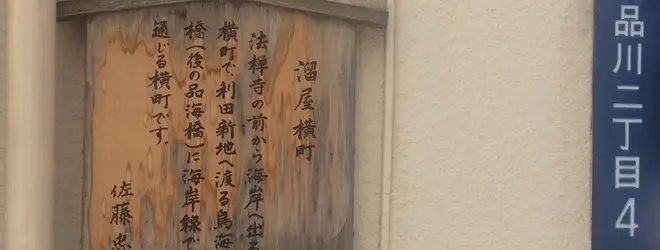 溜屋横町
法禅寺の前から海岸へ出る
横町で、利田新地へ渡る鳥海
橋(後の品海橋)に海岸線で
通じる横町です。
佐藤忠
品川二丁目4